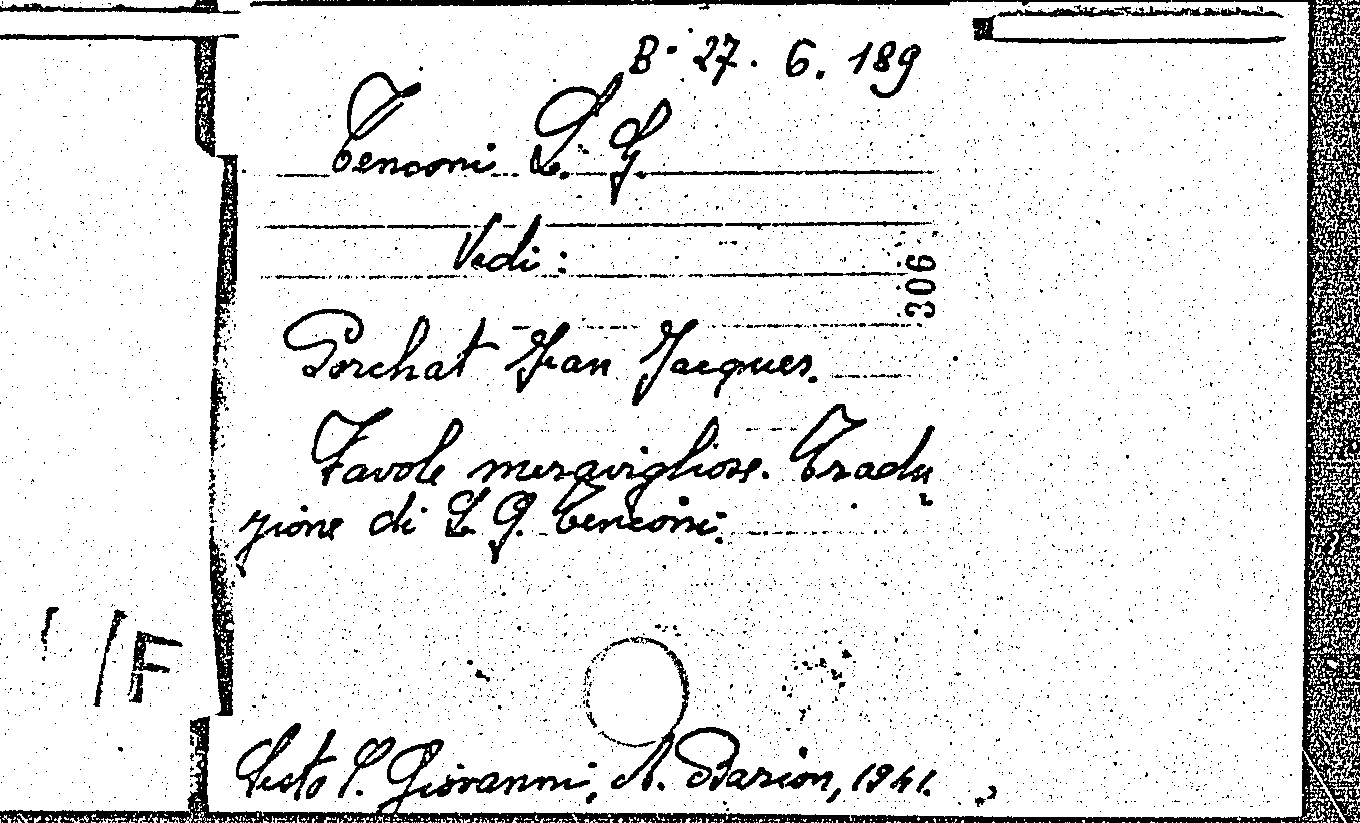 B. 27. 6. 189
Tenconi L. G.
Vedi:
306
Porchat Jean Jacques.
Favole meravigliose. Tradu
zione di L. G. Tenconi.
/F
Sesto S. Giovanni, A. Barion, 1941.